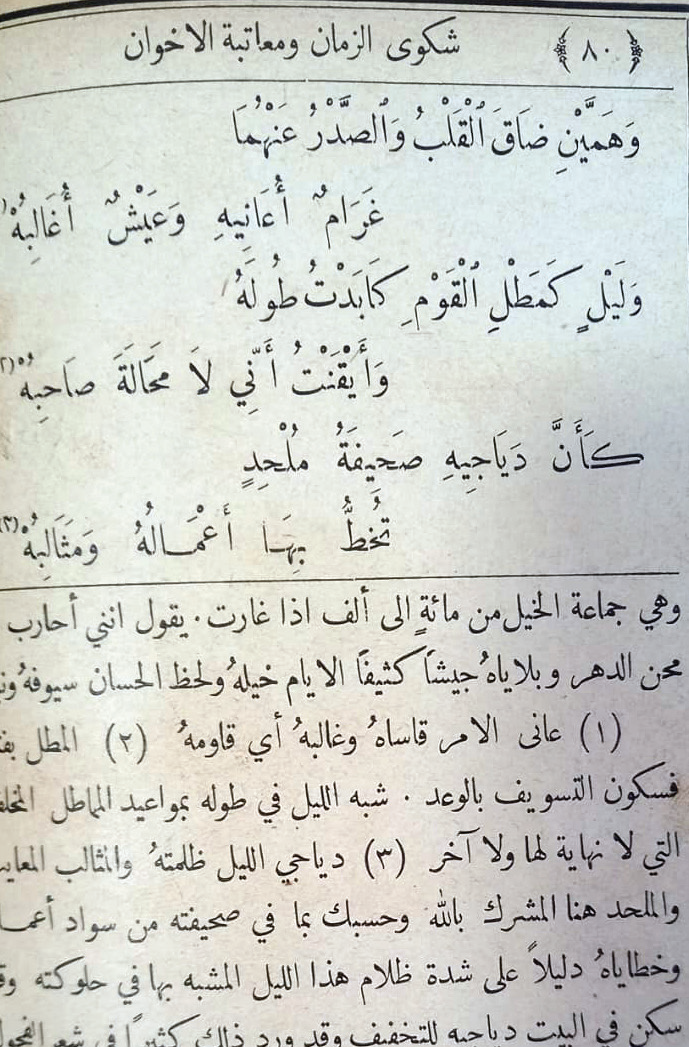 ﴿ ٨٠ ﴾ شكوى الزمان ومعاتبة الاخوان
وَهَمَّيْنِ ضَاقَ ٱلْقَلْبُ وَٱلصَّدْرُ عَنْهُمَا
غَرَامٌ أُعَانِيهِ وَعَيْشٌ أُغَالِبُهُ
وَلَيْلٍ كَمَطْلِ ٱلْقَوْمِ كَابَدْتُ طُولَهُ
وَأَيْقَنْتُ أَنِّي لاَ مَحَالَةَ صَاحِبُهُ (٢
كَأَنَّ دَيَاجِيهِ صَحِيفَةُ مُلْحِدٍ
تُخَطُّ بِهَا أَعْمَالُهُ وَمَثَالِبُهُ (٣)
وهي جماعة الخيل من مائةٍ الى ألف اذا غارت . يقول انني أحارب
محن الدهر وبلاياهُ جيشًا كثيفًا الايام خيلهُ ولحظ الحسان سيوفهُ
(١) عانى الامر قاساهُ وغالبهُ أي قاومهُ (٢) المطل
فسكون التسويف بالوعد . شبه الليل في طوله بمواعيد المماطل
التي لا نهاية لها ولا آخر (٣) دياجي الليل ظلمتهُ والمثالب
والملحد هنا المشرك بالله وحسبك بما في صحيفته من سواد
وخطاياهُ دليلاً على شدة ظلام هذا الليل المشبه بها في حلوكته
سكن في البيت دياجيه للتخفيف وقد ورد ذلك كثيرًا في شعر